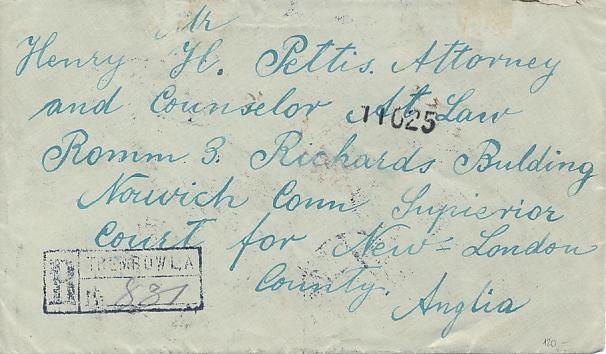 Mr
Henry H. Pettis. Attorney
and Counselor At Law
11025
Romm 3. Richards Bulding
Norwich Conn Supierior
Court for New-London
County.
Anglia
R
TREMBOWLA
№ 831
120-